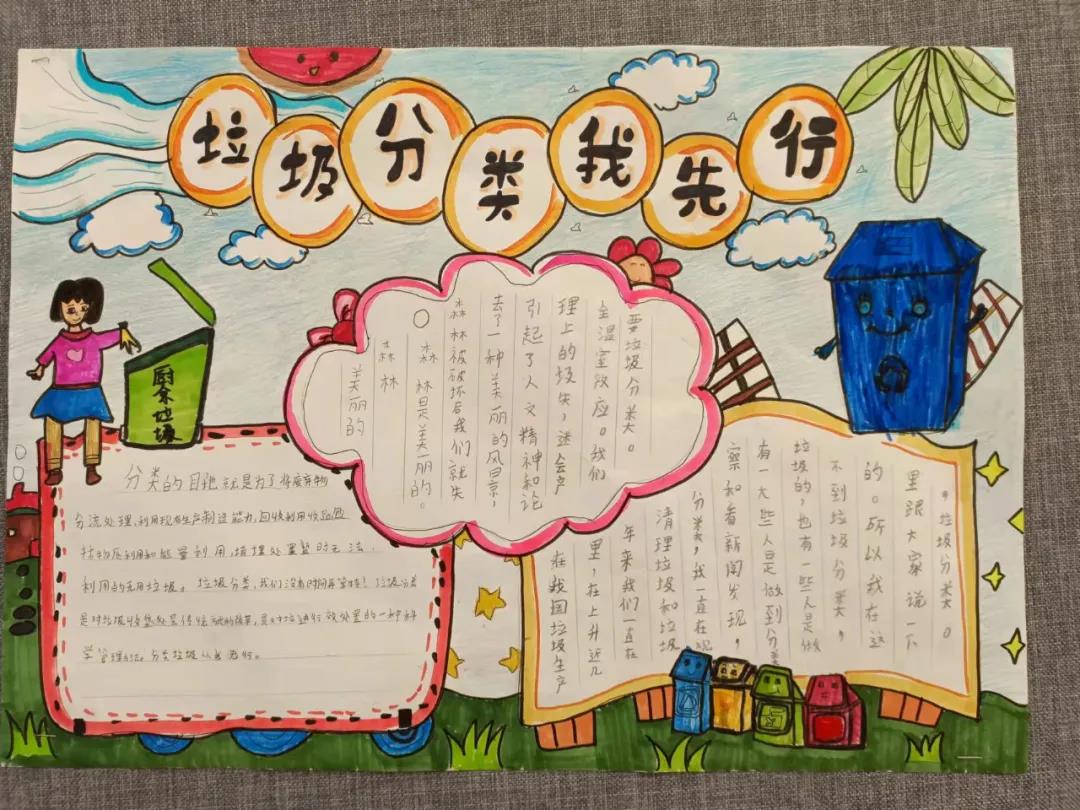 垃圾分类我先行
厨余垃圾
美丽的
森林
森林是美丽的。
森林被破坏后我们就失
去了一种美丽的风景,
引起了人文精神和论
理上的损失,还会产
生温室效应。我们
要垃圾分类。
分类的目地就是为了将废弃物
分流处理,利用现有生产制造能力,回收利用
物质利用和能量利用,填埋处置暂时无法
利用的无用垃圾。垃圾分类,我们没有时间再等待!垃圾分类
是对垃圾收集处置传统的改革,是对垃圾进行有效处置的一种科
学管理方法。分类垃圾从我
在我国垃圾生产
里,在上升近几
年来我们一直在
清理垃圾和垃圾
分类,我一直在观
察和看新闻发现,
有一大些人是做到分类
垃圾的,也有一些人是做
不到垃圾分类,
的。所以我在这
里跟大家说一下
,垃圾分类。